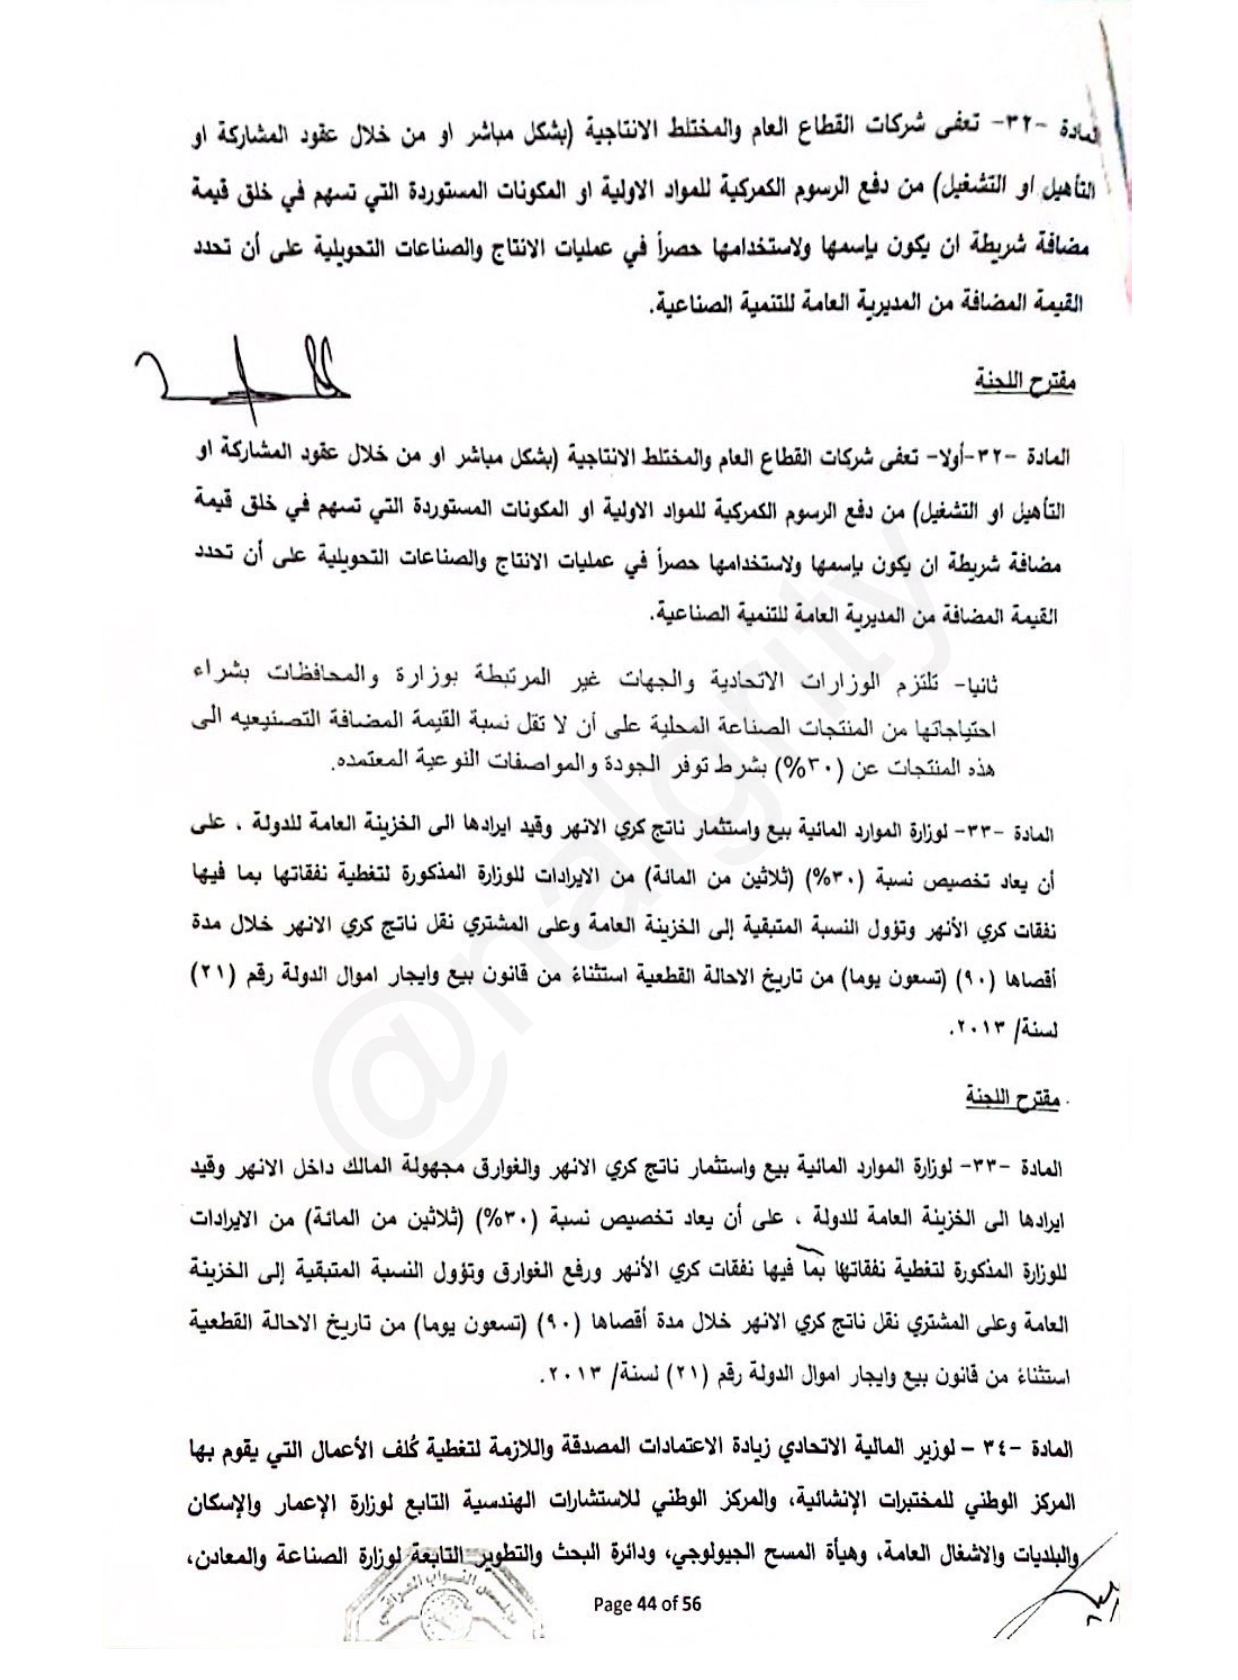 المادة -٣٢- تعفى شركات القطاع العام والمختلط الانتاجية (بشكل مباشر او من خلال عقود المشاركة او
التأهيل او التشغيل) من دفع الرسوم الكمركية للمواد الاولية او المكونات المستوردة التي تسهم في خلق قيمة
مضافة شريطة ان يكون بإسمها ولاستخدامها حصراً في عمليات الانتاج والصناعات التحويلية على أن تحدد
القيمة المضافة من المديرية العامة للتنمية الصناعية.
مقترح اللجنة
المادة -٣٢-أولا- تعفى شركات القطاع العام والمختلط الانتاجية (بشكل مباشر او من خلال عقود المشاركة او
التأهيل او التشغيل) من دفع الرسوم الكمركية للمواد الاولية او المكونات المستوردة التي تسهم في خلق قيمة
مضافة شريطة ان يكون بإسمها ولاستخدامها حصراً في عمليات الانتاج والصناعات التحويلية على أن تحدد
القيمة المضافة من المديرية العامة للتنمية الصناعية.
ثانيا- تلتزم الوزارات الاتحادية والجهات غير المرتبطة بوزارة والمحافظات بشراء
احتياجاتها من المنتجات الصناعة المحلية على أن لا تقل نسبة القيمة المضافة التصنيعيه الى
هذه المنتجات عن (٣٠%) بشرط توفر الجودة والمواصفات النوعية المعتمده.
المادة -٣٣- لوزارة الموارد المائية بيع واستثمار ناتج كري الانهر وقيد ايرادها الى الخزينة العامة للدولة ، على
أن يعاد تخصيص نسبة (٣٠%) (ثلاثين من المائة) من الايرادات للوزارة المذكورة لتغطية نفقاتها بما فيها
نفقات كري الأنهر وتؤول النسبة المتبقية إلى الخزينة العامة وعلى المشتري نقل ناتج كري الانهر خلال مدة
أقصاها (٩٠) (تسعون يوما) من تاريخ الاحالة القطعية استثناءً من قانون بيع وايجار اموال الدولة رقم (٢١)
لسنة/ ٢٠١٣.
مقترح اللجنة
المادة -٣٣- لوزارة الموارد المائية بيع واستثمار ناتج كري الانهر والغوارق مجهولة المالك داخل الانهر وقيد
ايرادها الى الخزينة العامة للدولة ، على أن يعاد تخصيص نسبة (٣٠%) (ثلاثين من المائة) من الايرادات
للوزارة المذكورة لتغطية نفقاتها بما فيها نفقات كري الأنهر ورفع الغوارق وتؤول النسبة المتبقية إلى الخزينة
العامة وعلى المشتري نقل ناتج كري الانهر خلال مدة أقصاها (٩٠) (تسعون يوما) من تاريخ الاحالة القطعية
استثناءً من قانون بيع وايجار اموال الدولة رقم (٢١) لسنة/ ٢٠١٣.
المادة -٣٤ – لوزير المالية الاتحادي زيادة الاعتمادات المصدقة واللازمة لتغطية كُلف الأعمال التي يقوم بها
المركز الوطني للمختبرات الإنشائية، والمركز الوطني للاستشارات الهندسية التابع لوزارة الإعمار والإسكان
والبلديات والاشغال العامة، وهيأة المسح الجيولوجي، ودائرة البحث والتطوير التابعة لوزارة الصناعة والمعادن،
مجلس النواب العراقي
Page 44 of 56
@nalgrity